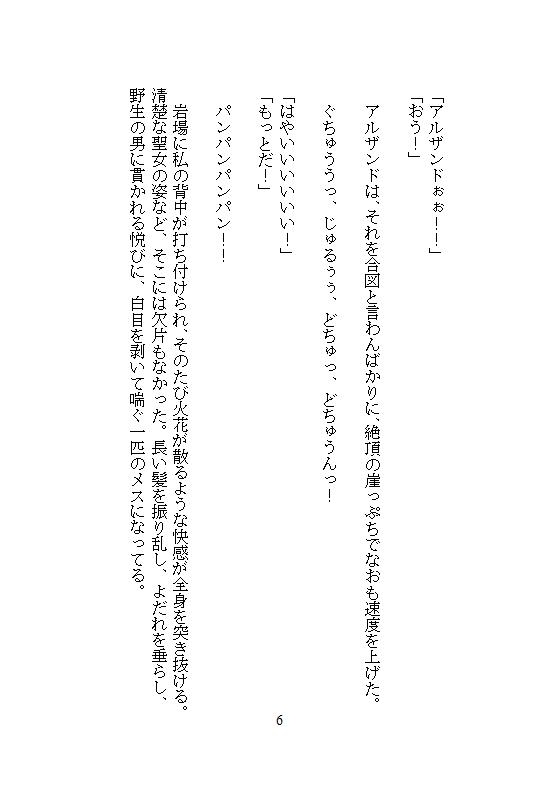 「アルザンドぉぉ！！」
「おう！」
アルザンドは、それを合図と言わんばかりに、絶頂の崖っぷちでなおも速度を上げた。
ぐちゅううっ、じゅるぅぅ、どちゅっ、どちゅうんっ！
「はやいいいいいい！」
「もっとだ！」
パンパンパンパン！！
岩場に私の背中が打ち付けられ、そのたび火花が散るような快感が全身を突き抜ける。
清楚な聖女の姿など、そこには欠片もなかった。長い髪を振り乱し、よだれを垂らし、
野生の男に貫かれる悦びに、白目を剥いて喘ぐ一匹のメスになってる。
6